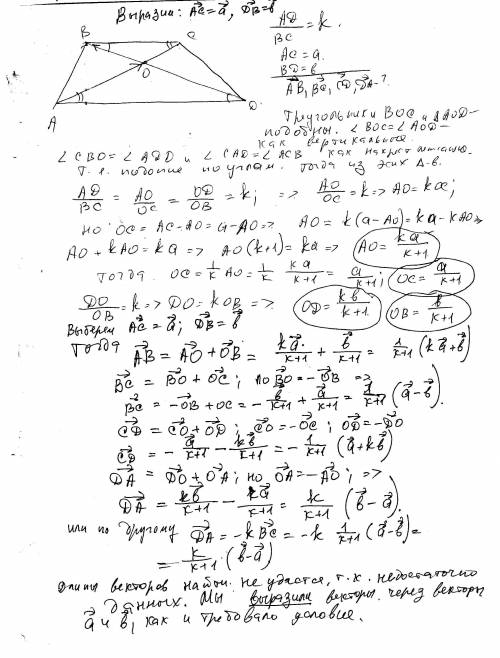 Вырази: AC⃗=a⃗, DB⃗=b⃗
AD/BC = k.
AC=a.
BD=b
AB, BC, CD, DA-?
B C
O
A D
Треугольники BOC и ΔAOD-
подобны. ∠BOC=∠AOD-
как вертикальные.
∠CBO=∠ADB и ∠CAD=∠ACB как накрест лежащие.
Т.е. подобие по углам. Тогда из этих Δ-в.
AD/BC = AO/OC = OD/OB = k; => AO/OC = k => AO=kOC;
но OC=AC-AO=a-AO => AO=k(a-AO)=ka-kAO =>
AO+kAO=ka => AO(k+1)=ka => AO=ka/(k+1)
тогда OC=1/k AO=1/k · ka/(k+1) = a/(k+1); OC=a/(k+1)
DO/OB=k => DO=kOB => OD=kb/(k+1) OB=b/(k+1)
Выберем AC⃗=a⃗; DB⃗=b⃗
Тогда AB⃗=AO⃗+OB⃗=ka⃗/(k+1)+b⃗/(k+1)=1/(k+1)(ka⃗+b⃗)
BC⃗=BO⃗+OC⃗; но BO⃗=-OB⃗ =>
BC⃗=-OB⃗+OC⃗=-b⃗/(k+1)+a⃗/(k+1)=1/(k+1)(a⃗-b⃗).
CD⃗=CO⃗+OD⃗; CO⃗=-OC⃗; OD⃗=-DO⃗
CD⃗=-a⃗/(k+1)-kb⃗/(k+1)=-1/(k+1)(a⃗+kb⃗)
DA⃗=DO⃗+OA⃗; но OA⃗=-AO⃗; =>
DA⃗=kb⃗/(k+1)-ka⃗/(k+1)=k/(k+1)(b⃗-a⃗).
или по другому DA⃗=-kBC⃗=-k 1/(k+1)(a⃗-b⃗)=
=k/(k+1)·(b⃗-a⃗)
Длины векторов найти не удастся, т.к. недостаточно
данных. Мы выразили векторы через векторы
a⃗ и b⃗, как и требовало условие.